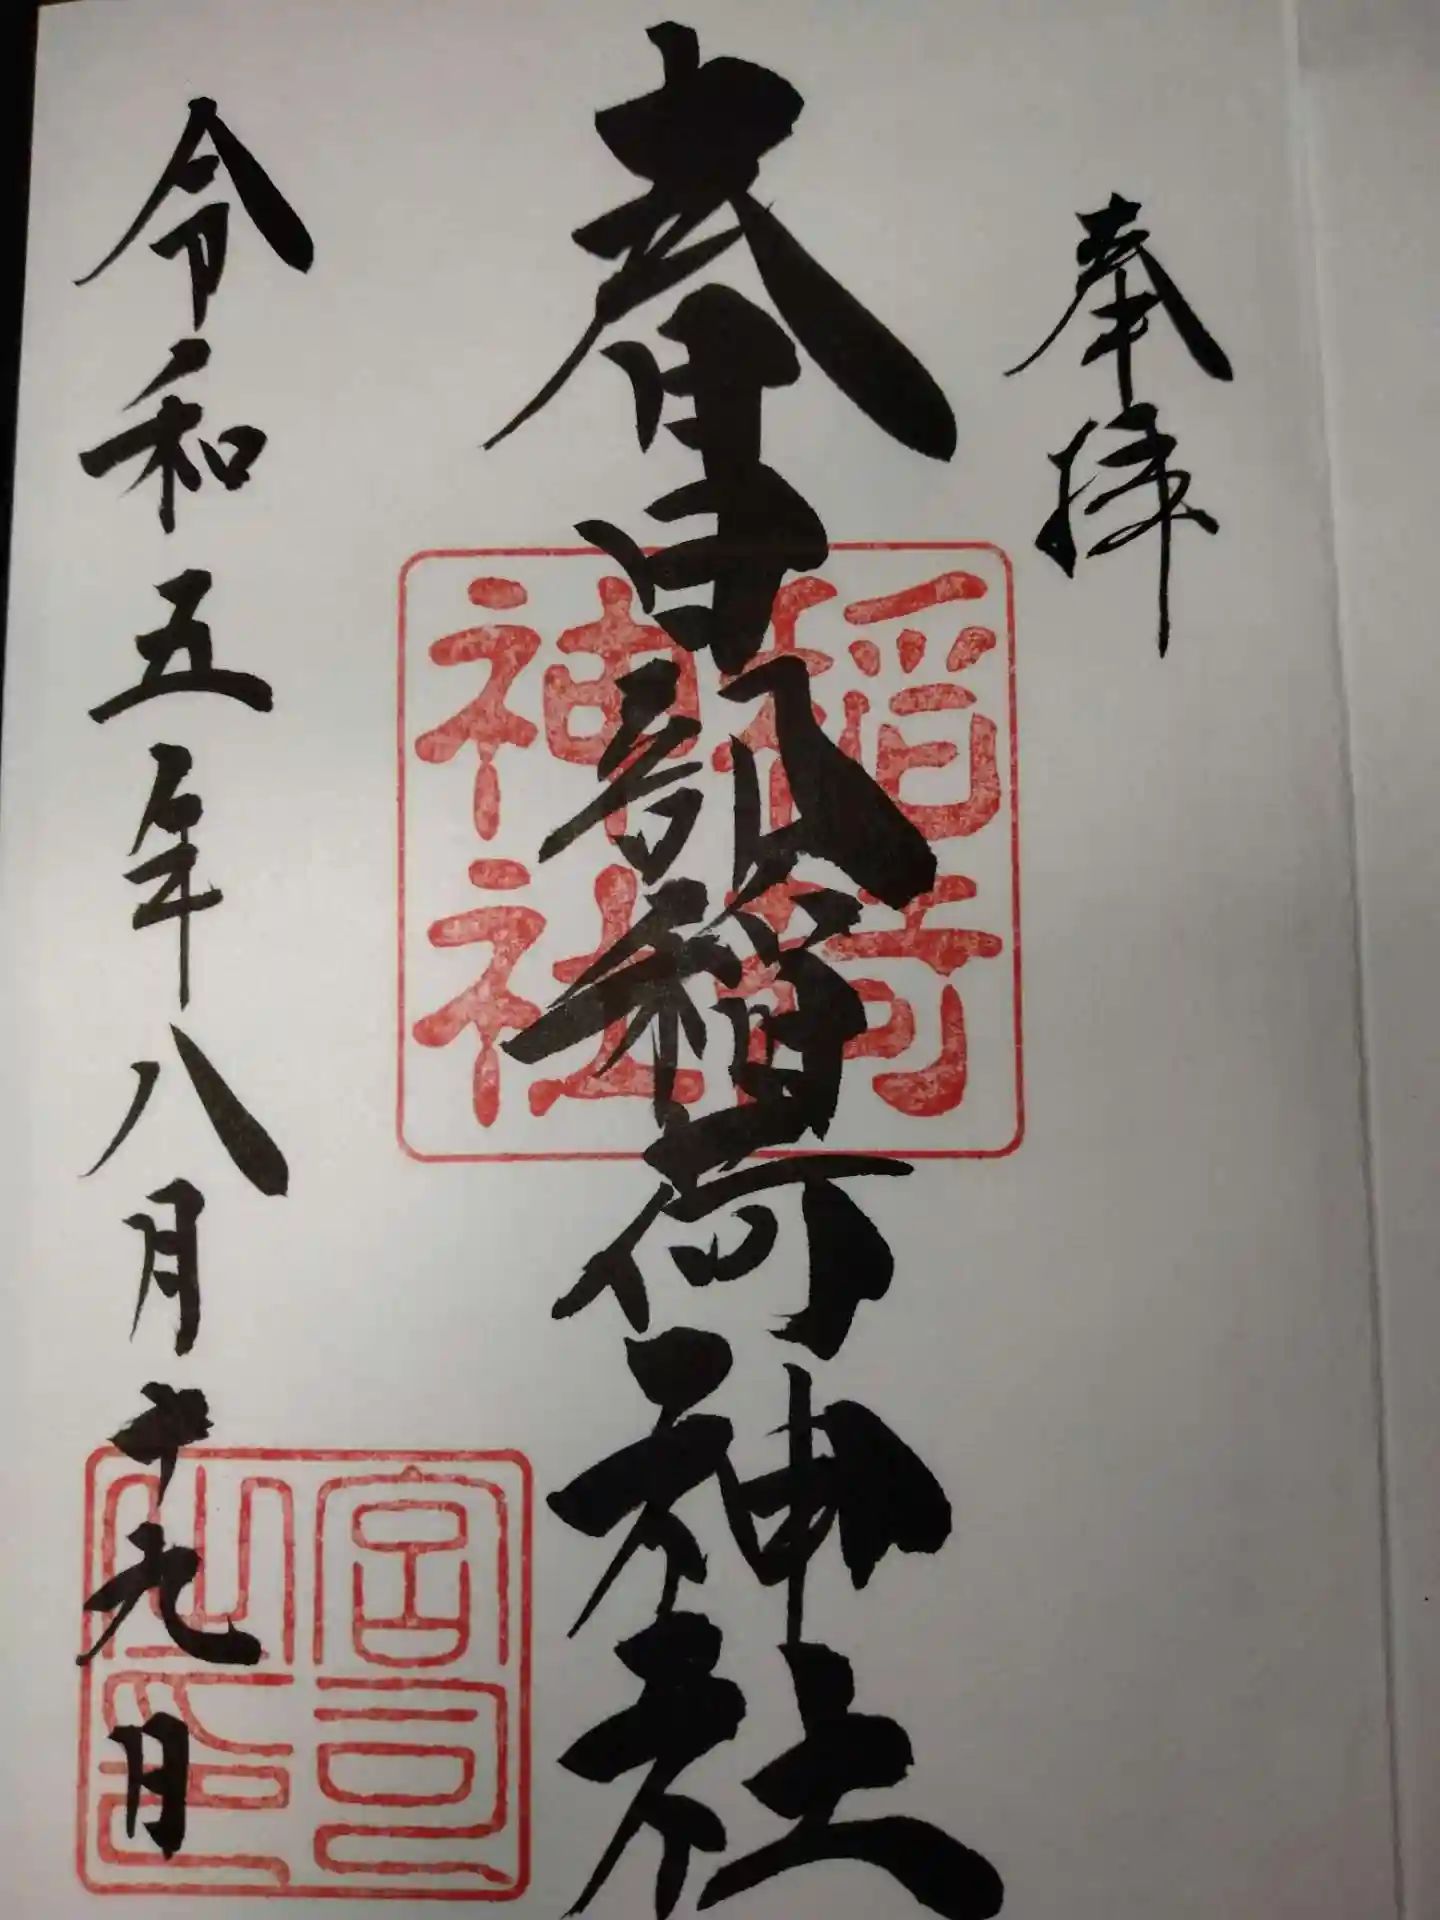 奉拝
春日部稲荷神社
稲荷
神社
令和五年八月十九日
宮司
之印